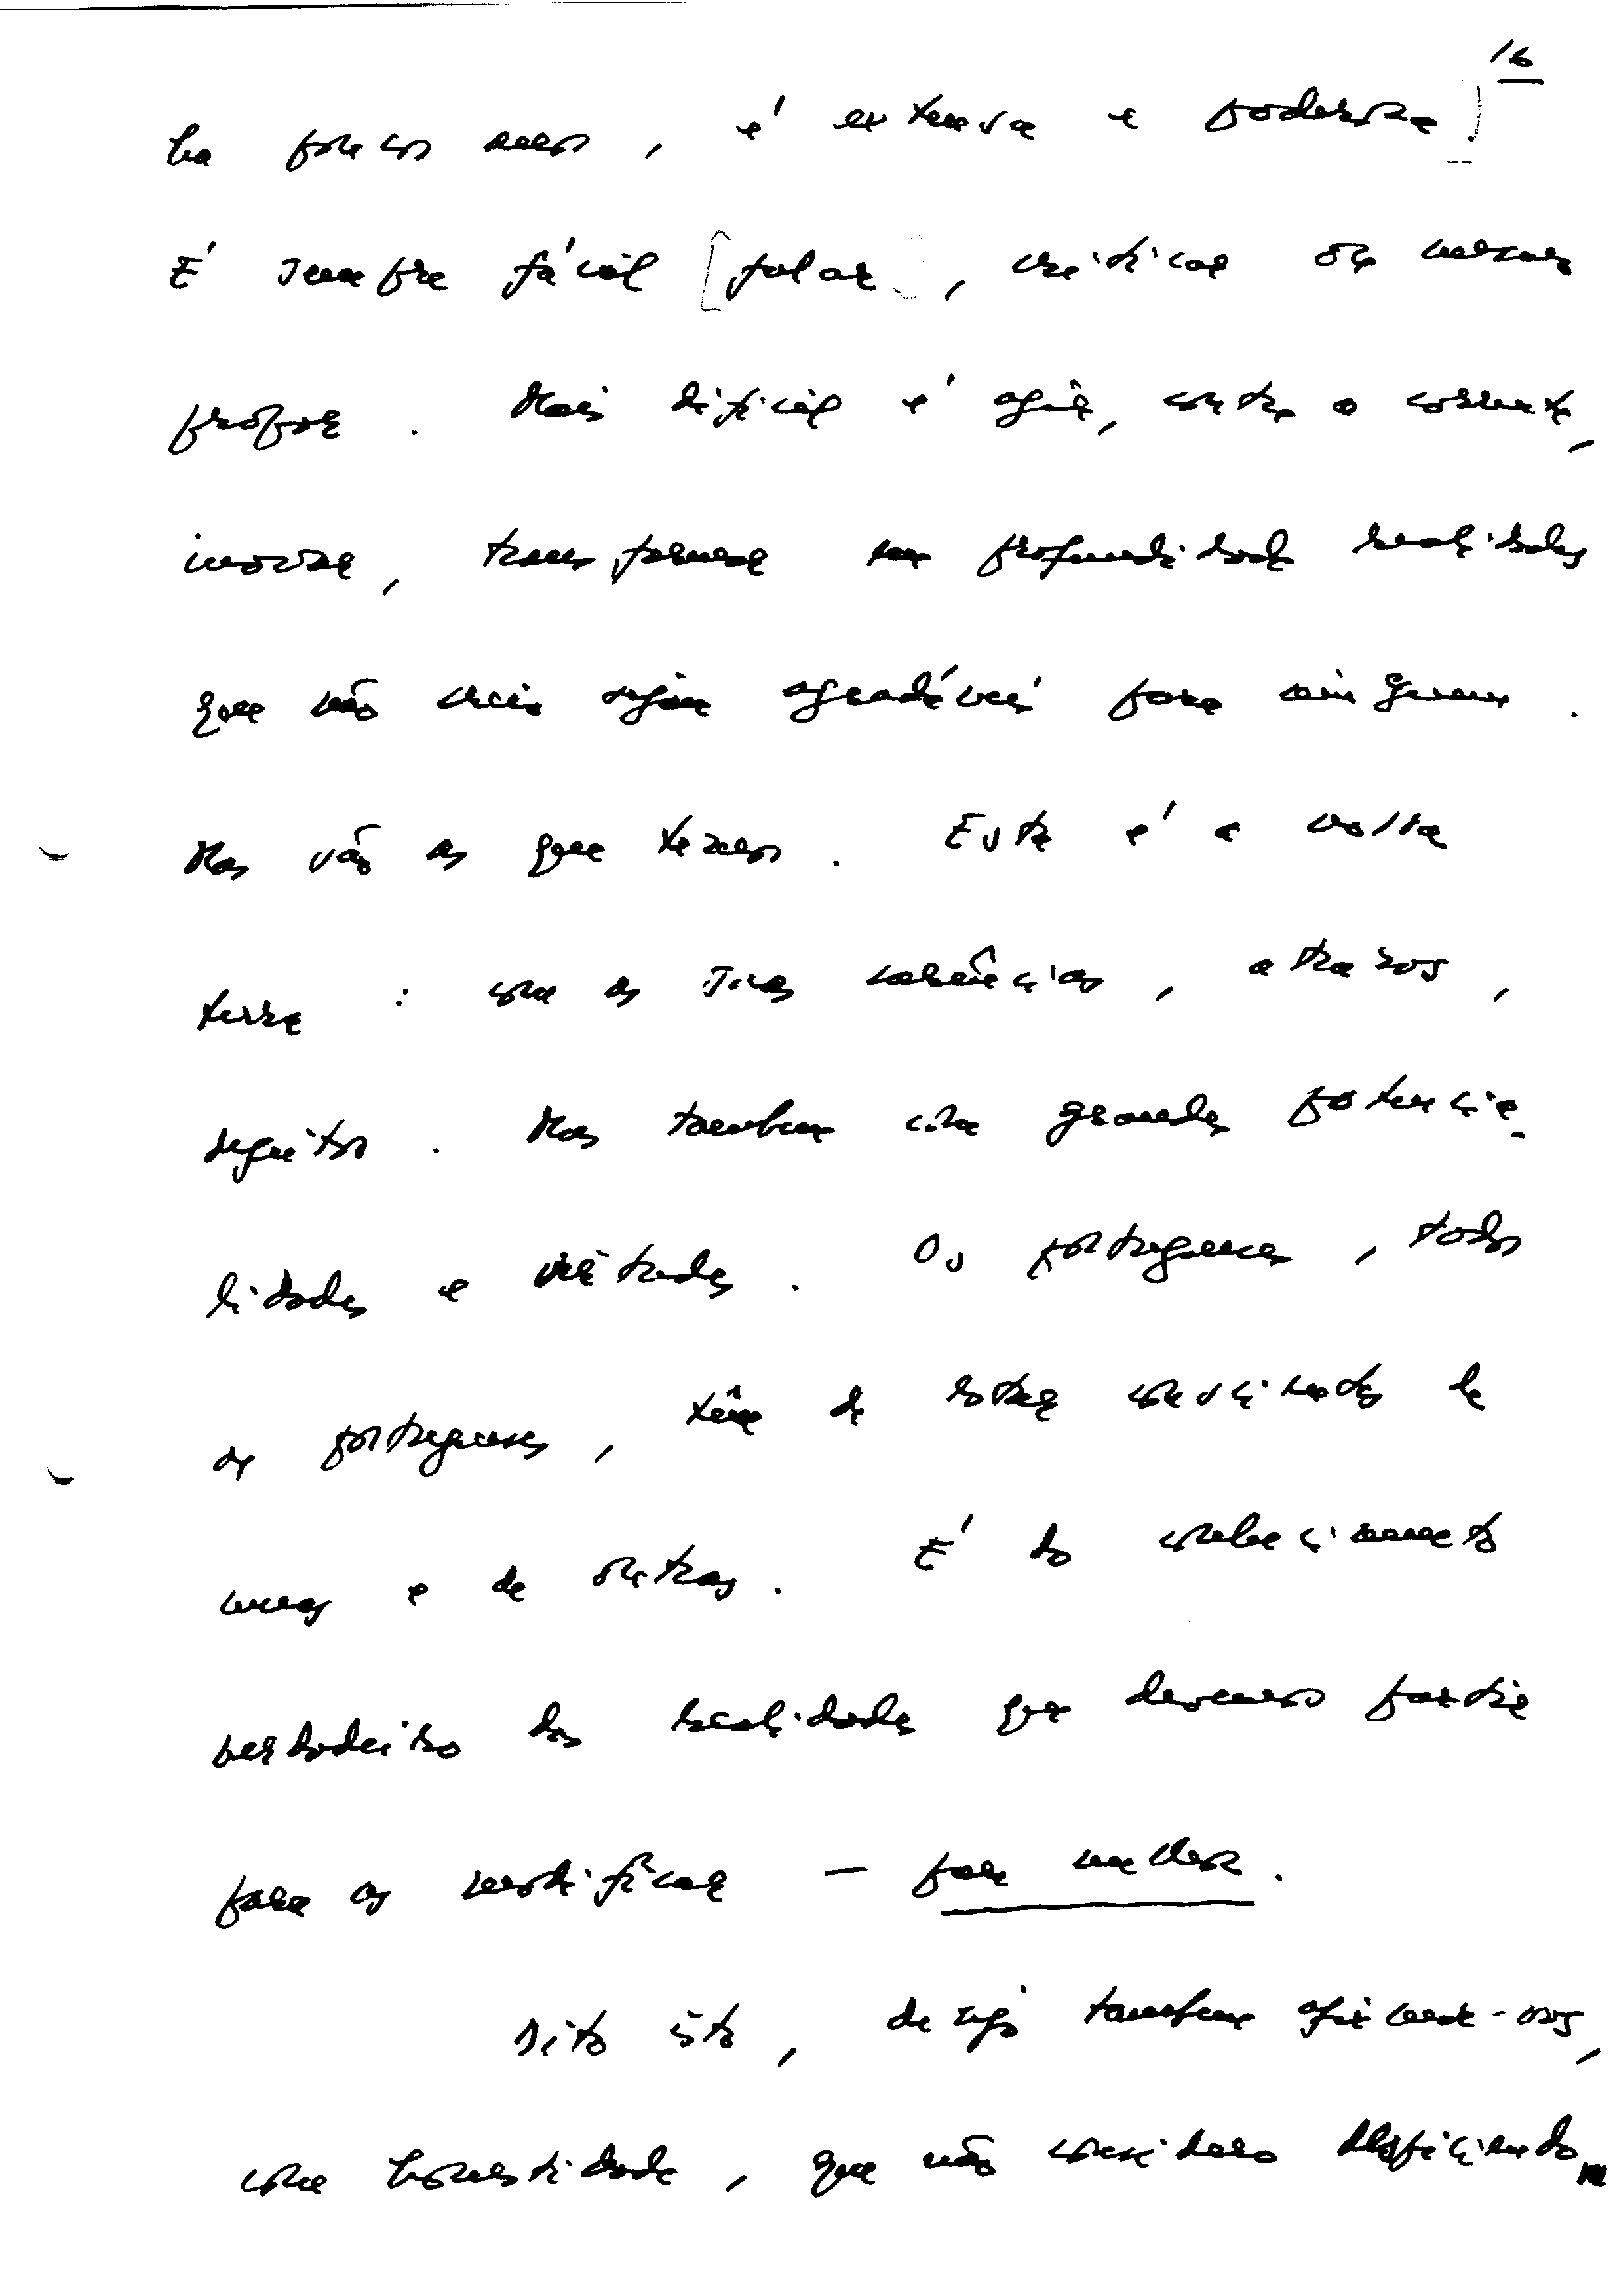 16
há poucos anos, é extensa e poderosa]
É sempre fácil [falar], criticar ou mesmo
propor. Mais difícil é agir, contra a corrente,
inovar, transformar em profundidade realidades
que não sejam agradáveis para ninguem.
Mas são as que temos. Esta é a nossa
terra: com as suas carências, atrasos,
defeitos. Mas tambem com grandes potencia-
lidades e virtudes. Os portugueses, todos
os portugueses, têm de estar conscientes de
umas e de outras. É do conhecimento
verdadeiro das realidades que devemos partir
para as modificar — para melhor.
Dito isto, desejo tambem afirmar-vos,
com honestidade, que não considero